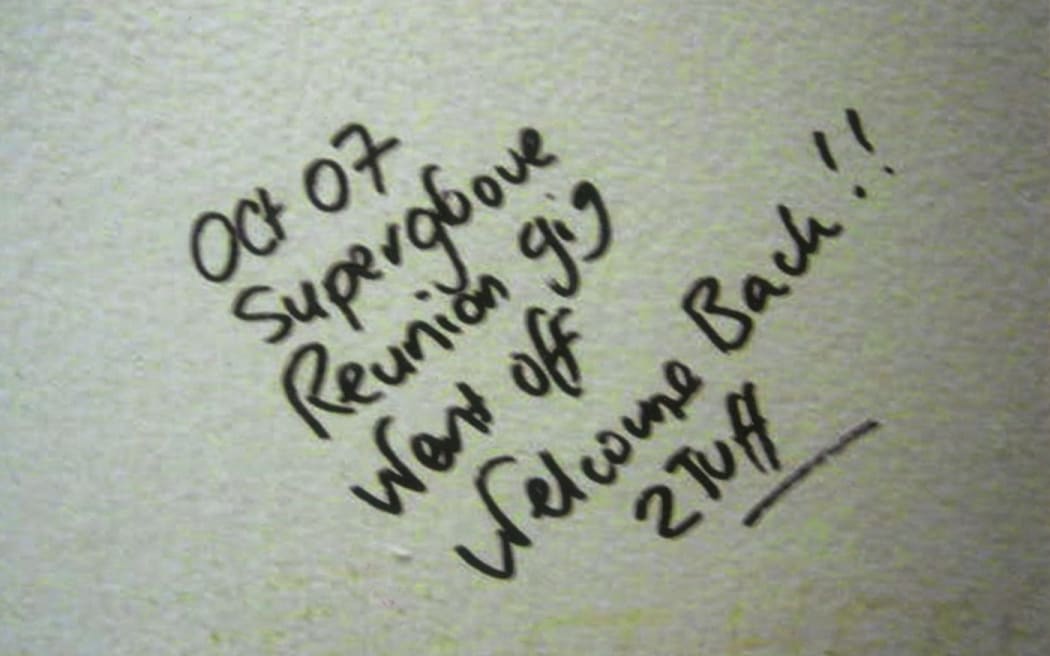 Oct 07
Supergroove
Reunion gig
Went off
Welcome Back!!
2 Tuff